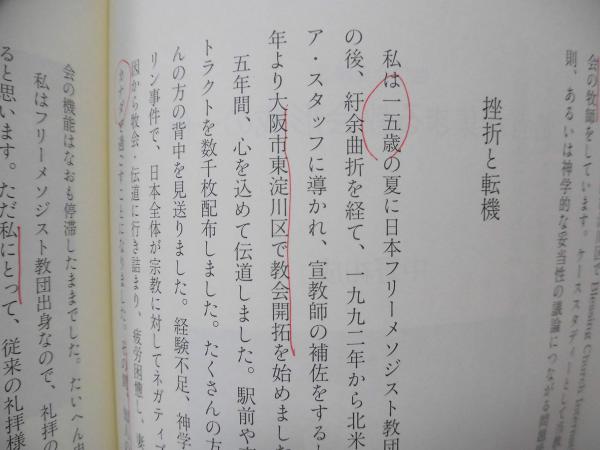 会の牧師をしています。ケーススタディーとして
則、あるいは神学的な妥当性の議論につながる問題
挫折と転機
私は一五歳の夏に日本フリーメソジスト教団
の後、紆余曲折を経て、一九九二年から北米
ア・スタッフに導かれ、宣教師の補佐をする
年より大阪市東淀川区で教会開拓を始めました
五年間、心を込めて伝道しました。駅前や
トラクトを数千枚配布しました。たくさんの方
んの方の背中を見送りました。経験不足、神学
リン事件で、日本全体が宗教に対してネガティブ
因から教会・伝道に行き詰まり、疲労困憊し、妻
カナダで過ごすことになりました。その間
会の機能はなおも停滞したままでした。たいへん
私はフリーメソジスト教団出身なので、礼拝の
ると思います。ただ私にとって、従来の礼拝様